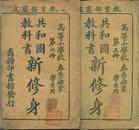 教育部審定
高等小學校 春季始業
共和國教科書
新修身
第六冊
商務印書館發行
教育部審定
高等小學校 春季始業
共和國教科書
新修身
商務印書館發行